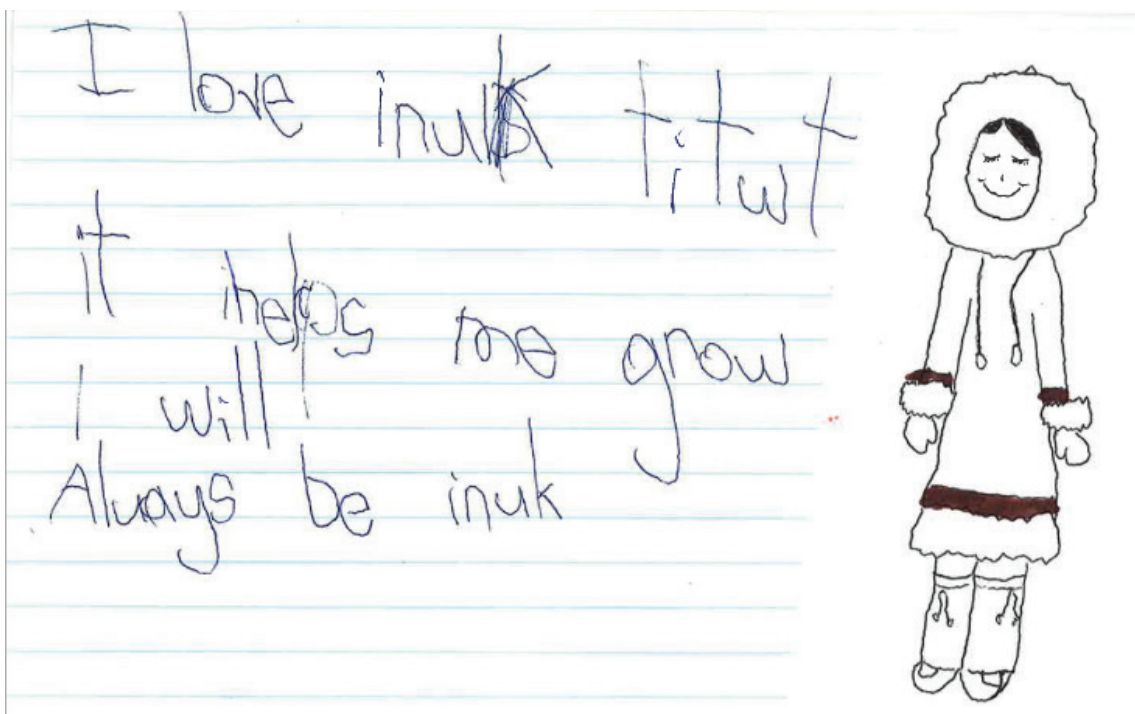 I love inuk titwt
it helps me grow
I will
Always be inuk